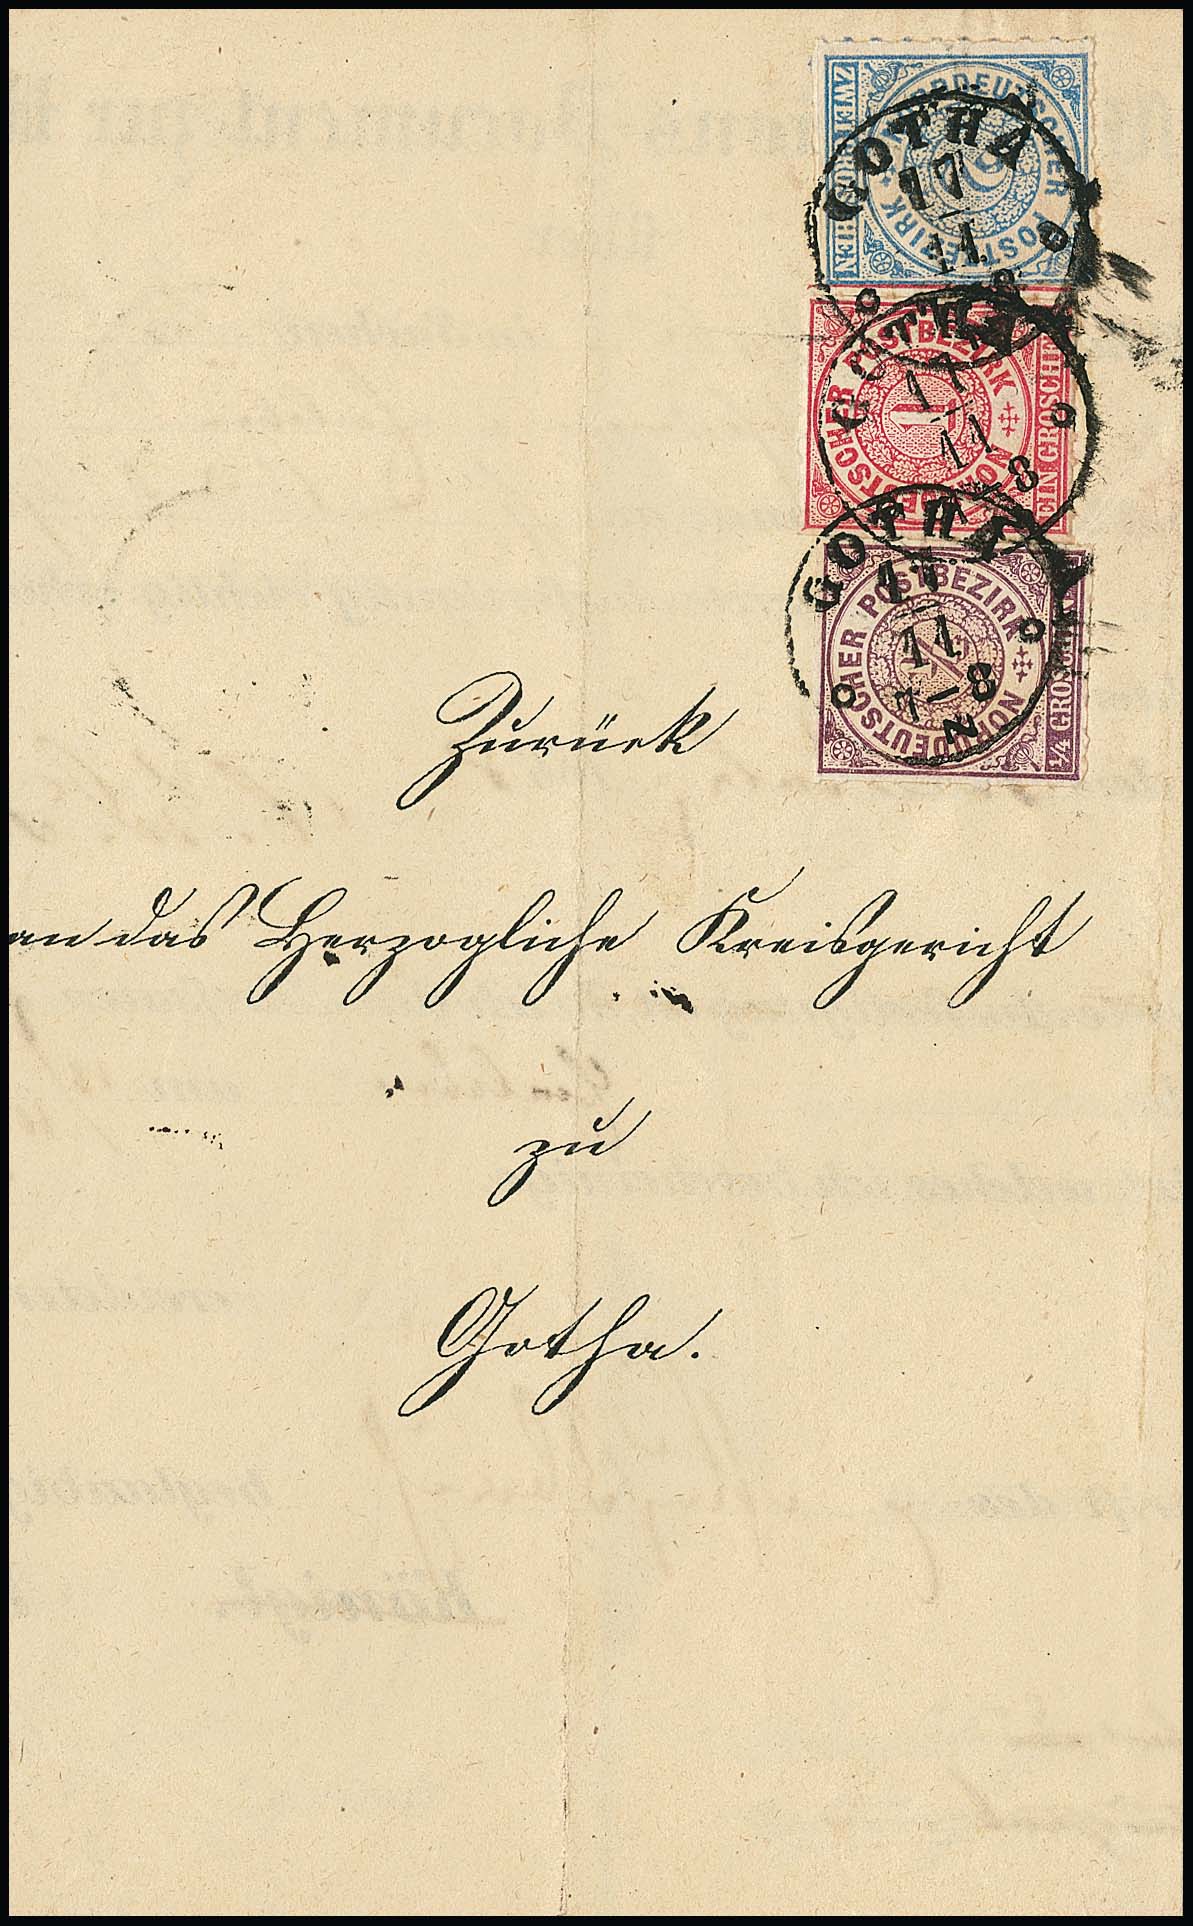 NORDDEUTSCHER POSTBEZIRK
ZWEI GROSCHEN
2
GOTHA
17
11
NORDDEUTSCHER POSTBEZIRK
EIN GROSCHEN
1
GOTHA
17
11
7-8
NORDDEUTSCHER POSTBEZIRK
1/4 GROSCHEN
1/4
GOTHA
17
11
7-8
N
Zurück
an das Herzogliche Kreisgericht
zu
Gotha.